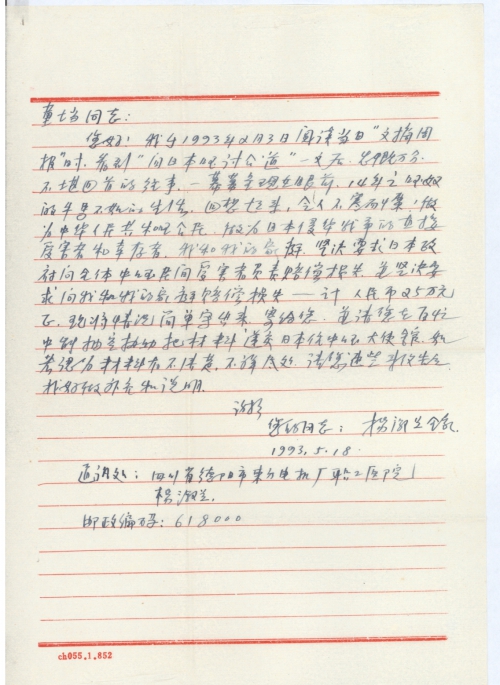 童增同志：
您好！我于1993年2月3日阅读当日"文摘周
报"时，看到"向日本国讨公道"一文后，
不堪回首的往事，一幕幕呈现在眼前，14年亡国奴
的牛马不如的生活，回想起来，令人不寒而慄，做
为中华人民共和国公民，做为日本侵华战争的直接
受害者和幸存者，我和我的家 坚决要求日本政
府向全体中国民间受害者负责赔偿损失，并坚决要
求向我和我的家 赔偿损失——计人民币25万元
正，现将情况简单写出来，寄给您，并请您在百忙
中 协助把材料递交日本在中国大使馆，如
若认为材料有不清楚，不详尽处，请您速告
我好做补充和说明。
谢谢
您的同志：杨淑兰
1993.5.18.
通讯处：四川省德阳市东方电机厂职工医院
杨淑兰
邮政编码：618000
ch055.1.852